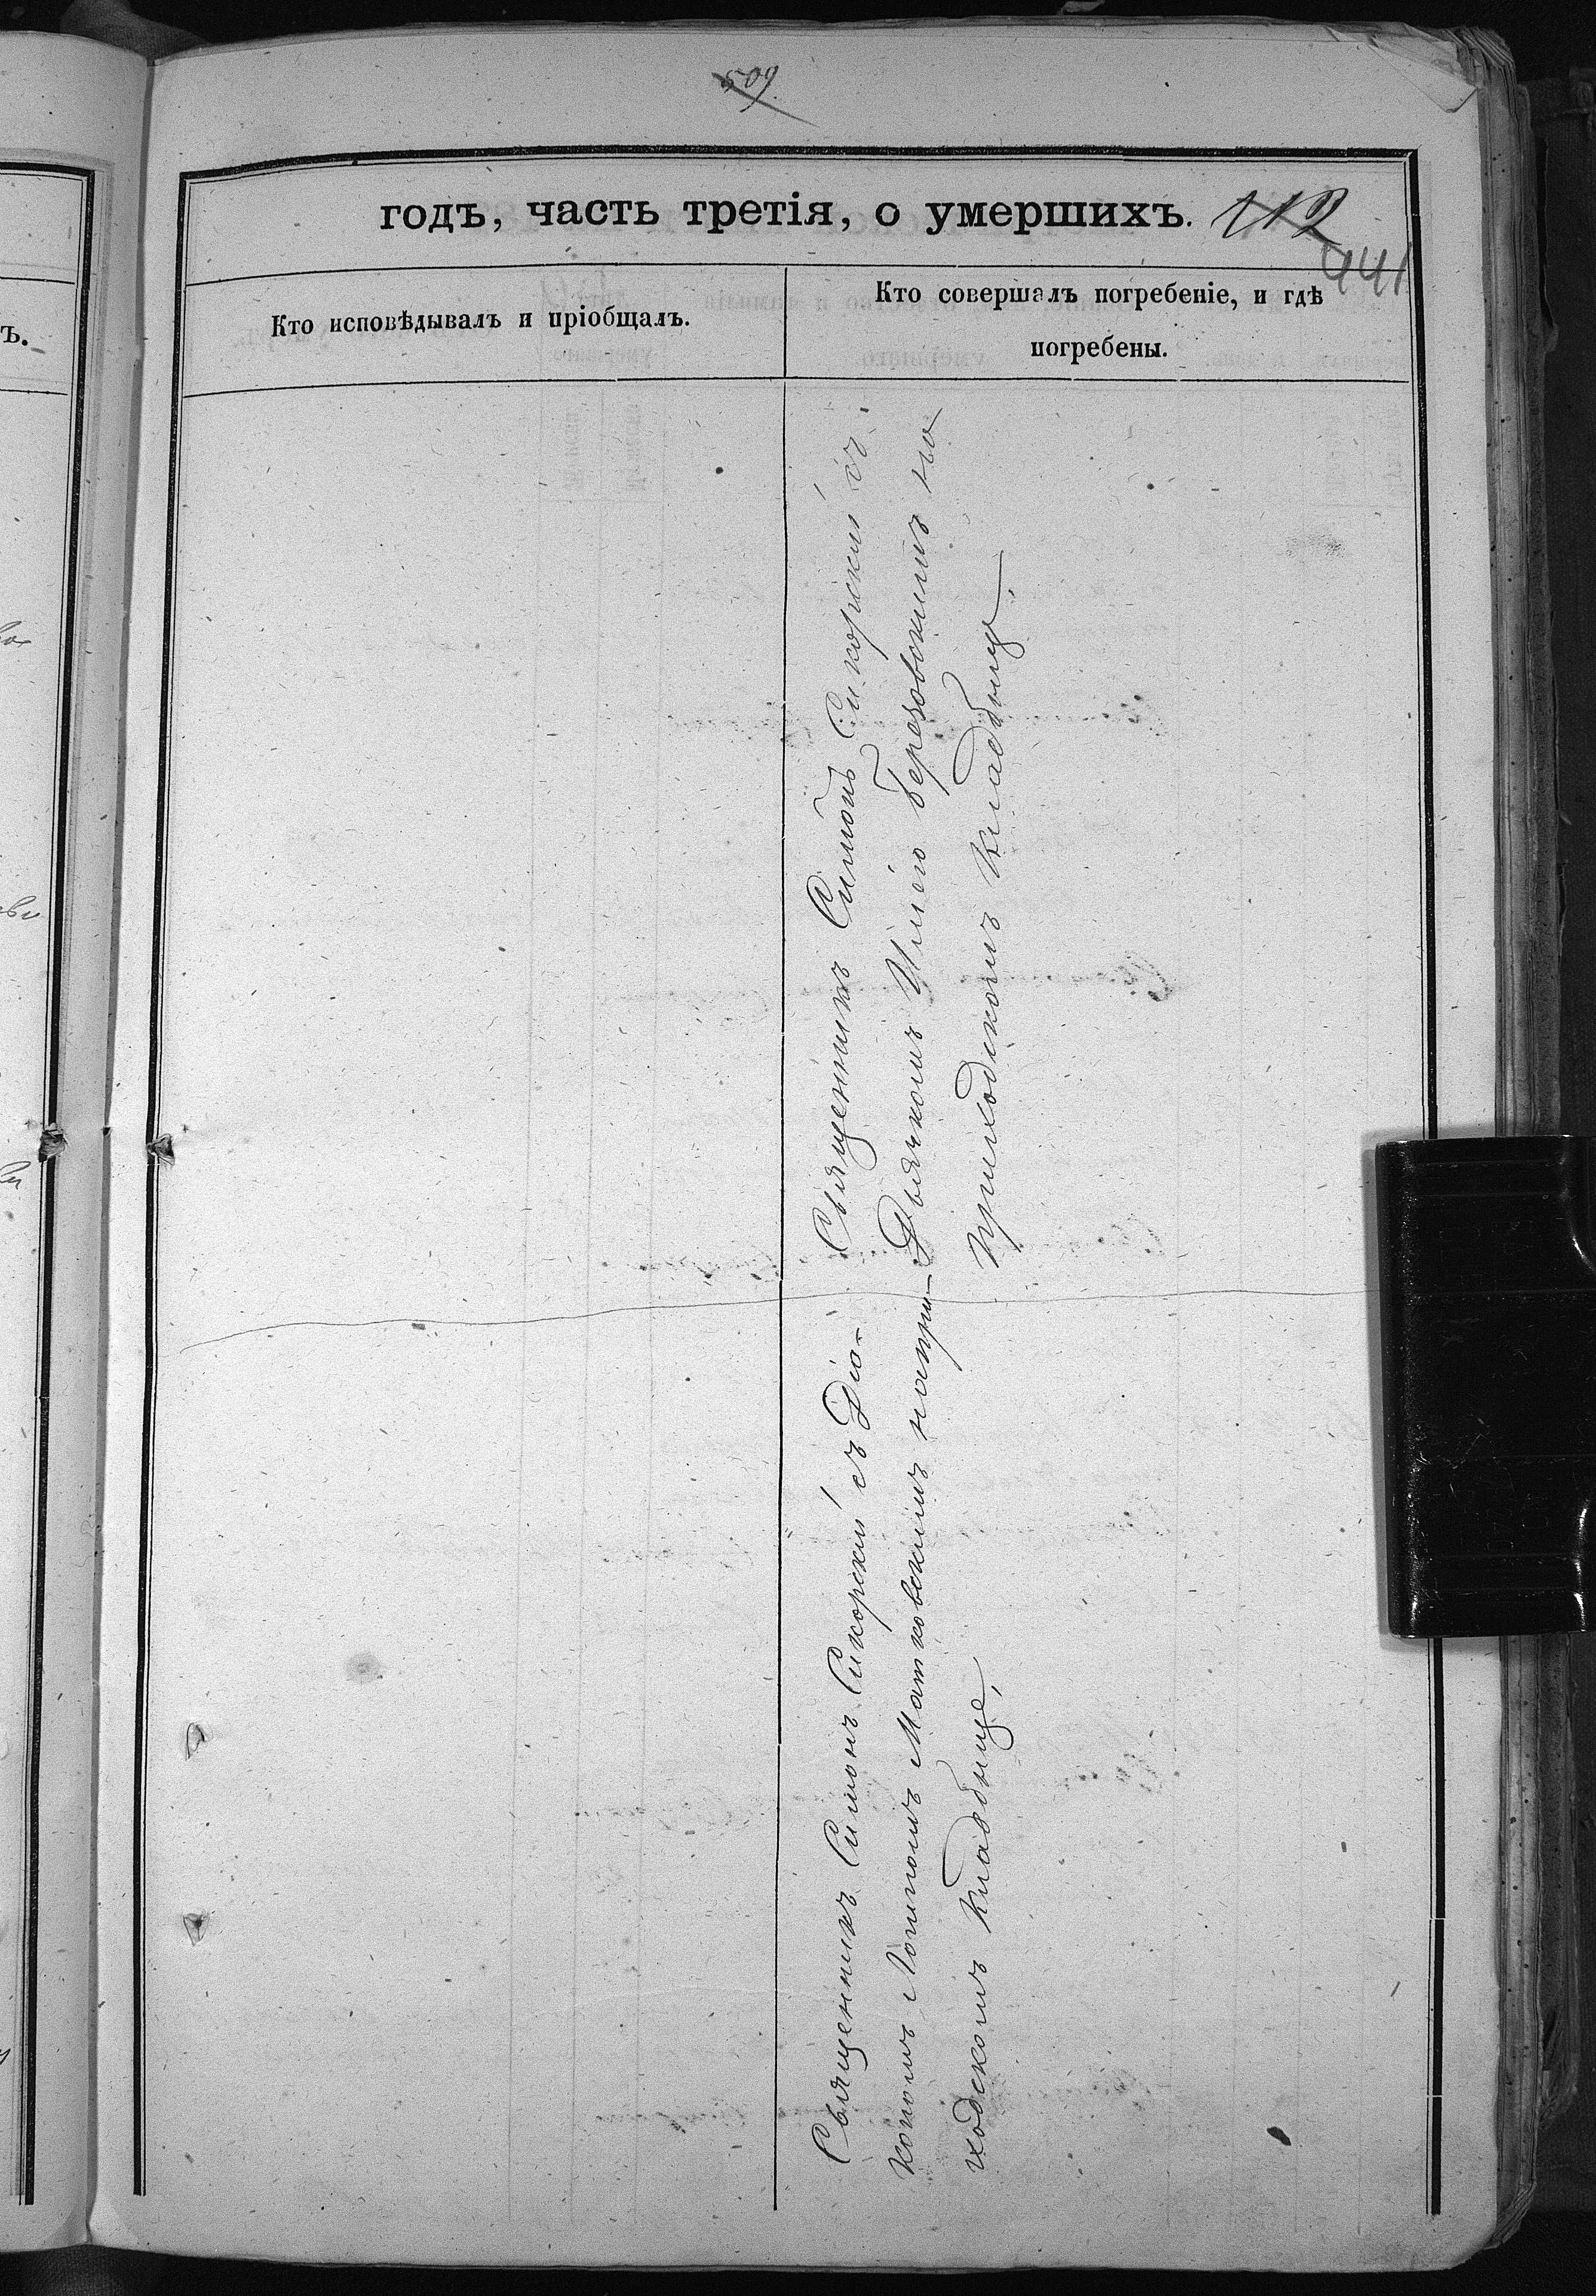 509.
годъ, часть третія, о умершихъ. 112
441
Кто исповѣдывалъ и пріобщалъ.
Кто совершалъ погребеніе, и гдѣ
погребены.
Священникъ Симонъ Сикорскій съ
Дьячкомъ Иліею Березовскимъ на
приходскомъ кладбищѣ.
Священникъ Симонъ Сикорскій съ Діа-
кономъ Матковскимъ на при-
ходскомъ кладбищѣ.